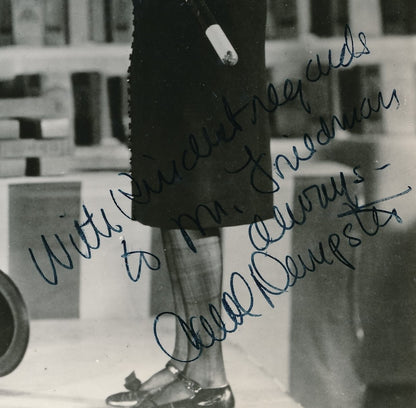 With kindest regards
to Mr. Friedman
always -
Carol Dempster